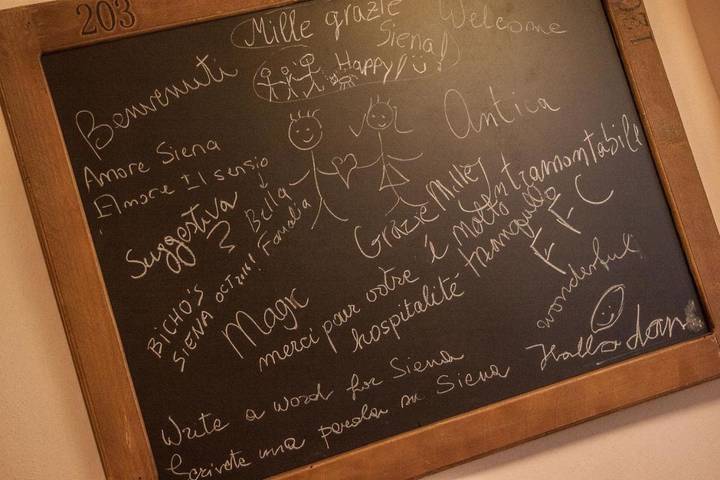 203
Mille grazie
Siena!
Welcome
Happy!
Benvenuti
Antica
Amore Siena
Amore Il sensio
Bella
Familia
Suggestiva
Grazie Milley
Intramontabile
È molto
tranquilla
FFC
BICHO'S
SIENA OCT 2016!
Magic
merci pour votre
hospitalité
wonderful
Hallo
Write a word for Siena
Scrivete una parola su Siena